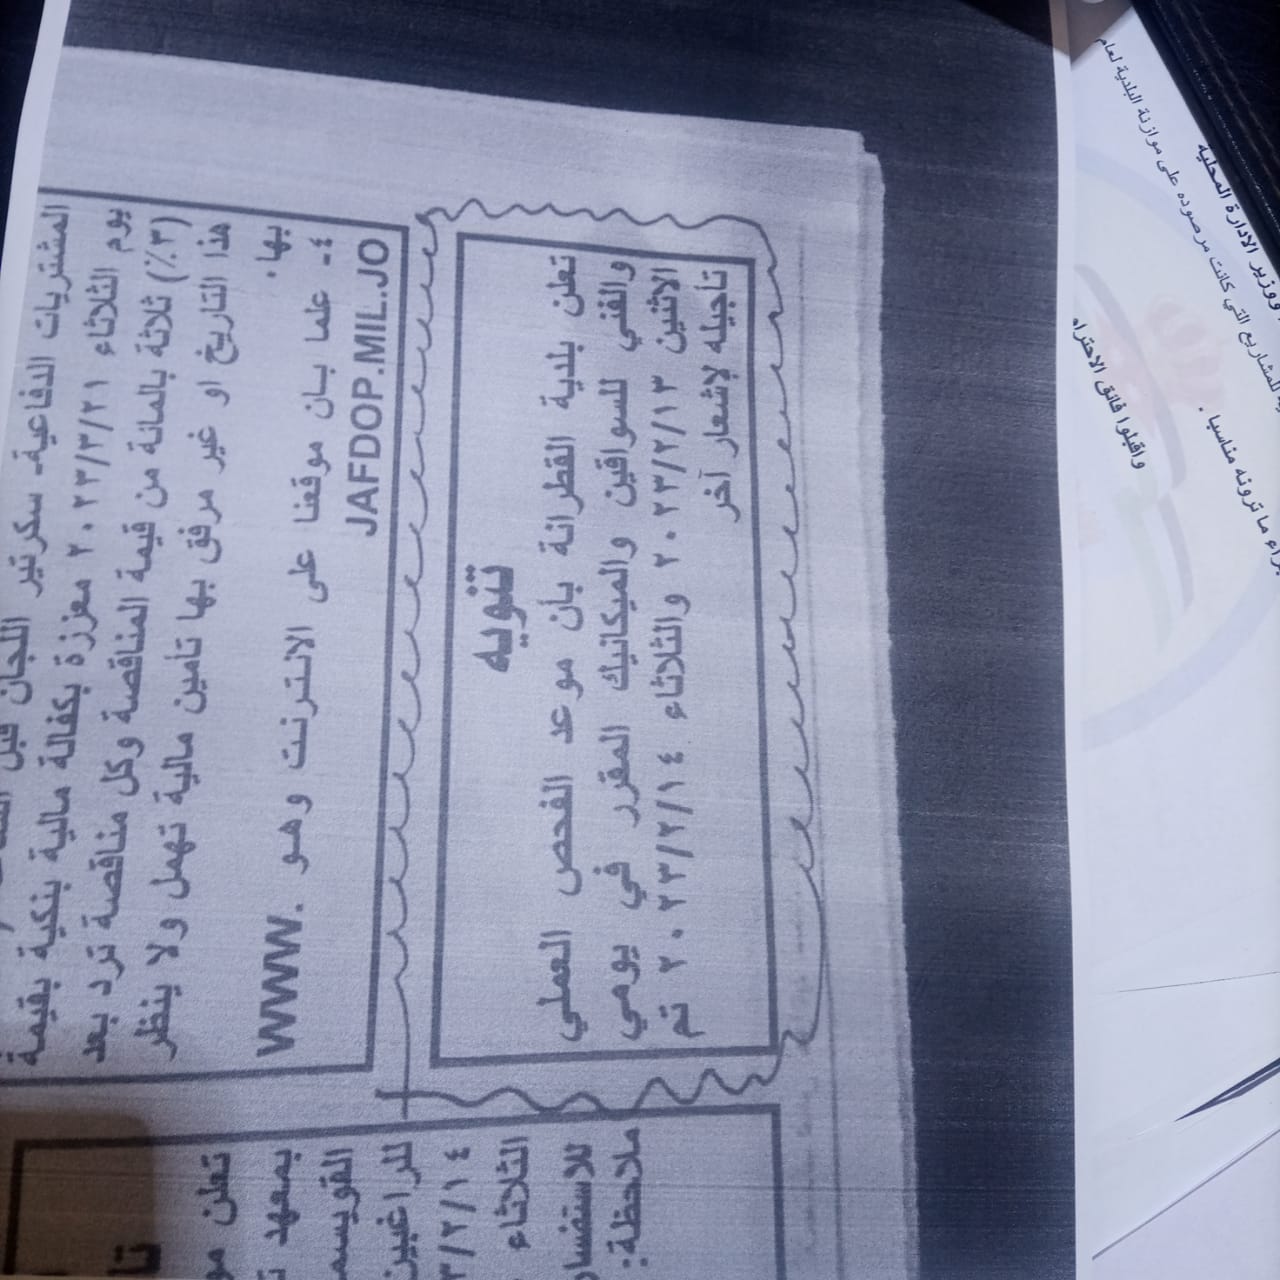 المشتريات الدفاعية- سكرتير اللجان قبل
يوم الثلاثاء ٢٠٢٣/٣/٢١ معززة بكفالة مالية بنكية بقيمة
(٣٪) ثلاثة بالمائة من قيمة المناقصة وكل مناقصة ترد بعد
هذا التاريخ او غير مرفق بها تامين مالية تهمل ولا ينظر
بها.
٤- علما بان موقعنا على الانترنت وهو .WWW
JAFDOP.MIL.JO
تنويه
تعلن بلدية القطرانة بان موعد الفحص العملي
والفني للسواقين والميكانيك المقرر في يومي
الاثنين ٢٠٢٣/٢/١٣ والثلاثاء ٢٠٢٣/٢/١٤ تم
تأجيله لإشعار آخر
تعلن
بمعهد
القويسم
للراغبين
٣/٢/١٤
الثلاثاء
للاستفسار
ملاحظة:
ووزير الادارة المحلية
للمشاريع التي كانت مرصوده على موازنة البلدية لعام
ما ترونه مناسبا .
واقبلوا فائق الاحترام